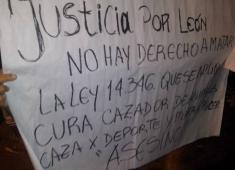 JUSTICIA POR LEÓN
NO HAY DERECHO A MATAR
LA LEY 14346. QUE SE
CURA CAZADOR DE
CAZA X DEPORTE Y
"ASESINO"